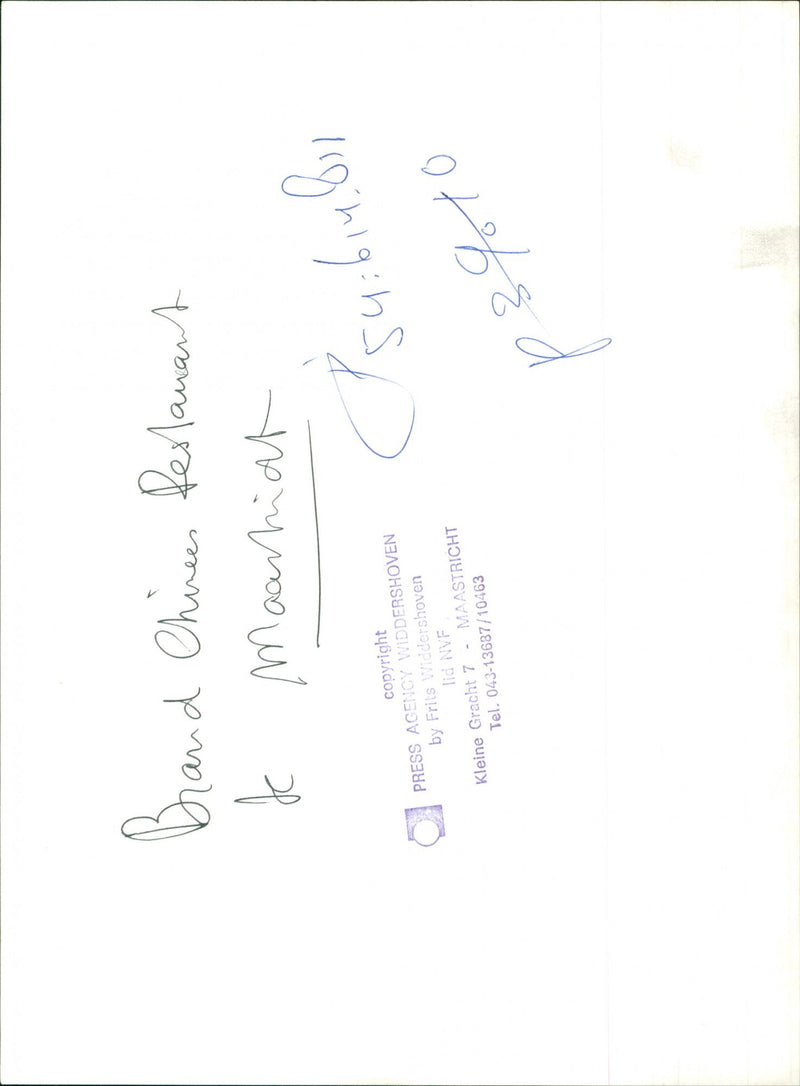 Brand Chinees Restaurant
te Maastricht
copyright
PRESS AGENCY WIDDERSHOVEN
by Frits Widdershoven
lid NVF
Kleine Gracht 7 - MAASTRICHT
Tel. 043-13687/10463